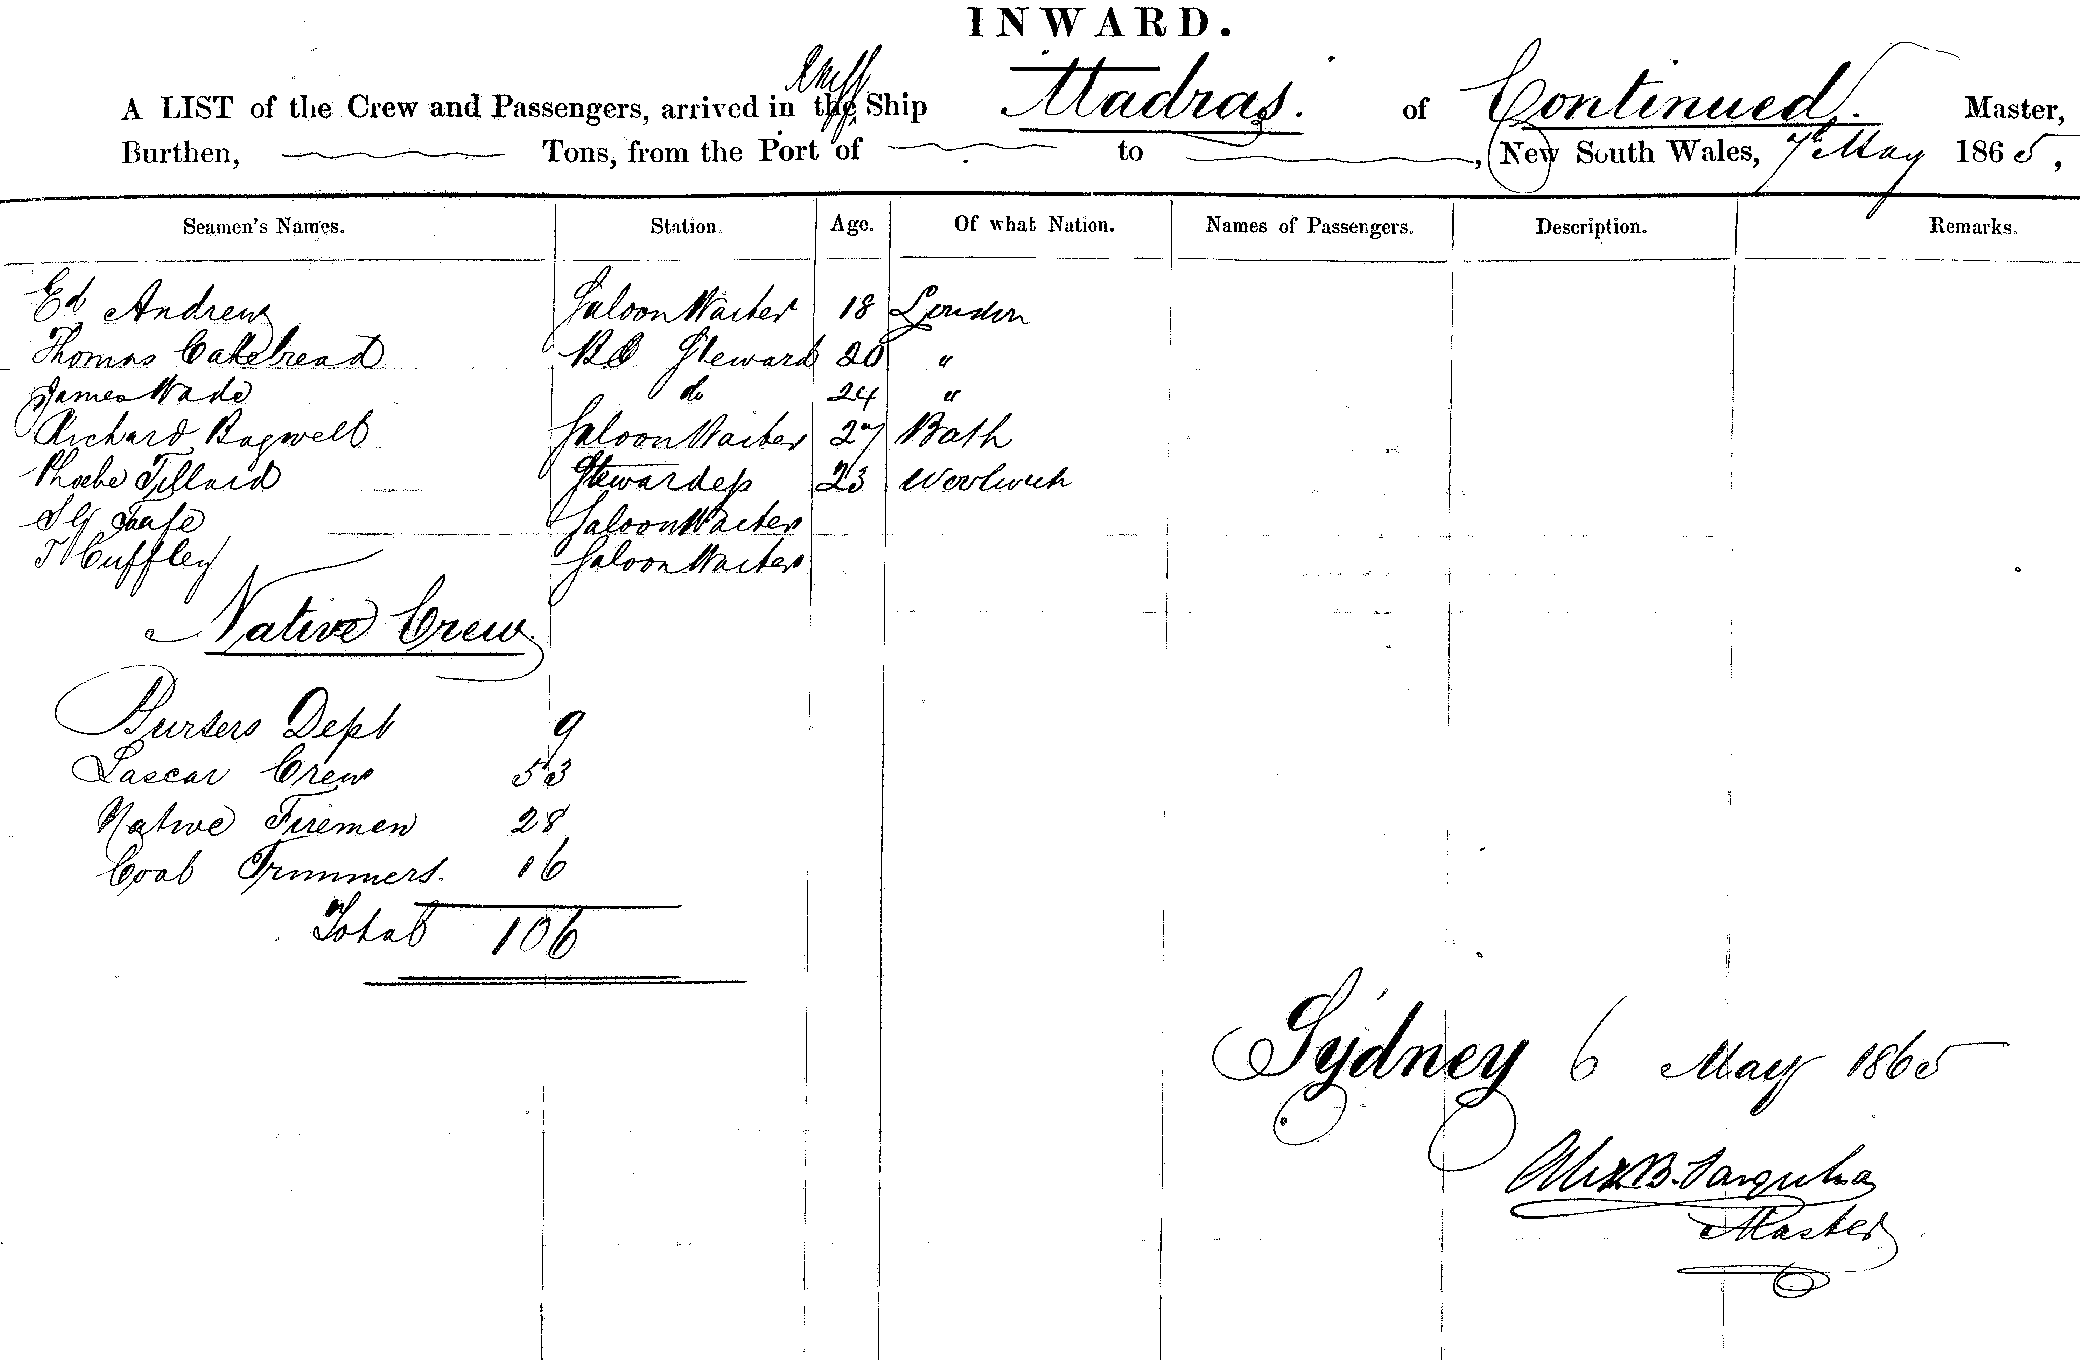 INWARD.
A LIST of the Crew and Passengers, arrived in the Ship Madras. of Continued. Master,
Burthen, Tons, from the Port of to , New South Wales, 7th May 1865,
Seamen's Names. Station. Age. Of what Nation. Names of Passengers. Description. Remarks.
Ed Andrew Saloon Waiter 18 London
Thomas Cakebread Steward 20 "
James Wade do 24 "
Richard Bagwell Saloon Waiter 27 Bath
Phoebe Tillard Stewardess 23 Woolwich
Saloon Waiter
T Cuffley Saloon Waiter
Native Crew.
Pursers Dept 9
Lascar Crew 53
Native Firemen 28
Coal Trimmers. 16
Total 106
Sydney 6 May 1865
Alex B. Farquhar
Master